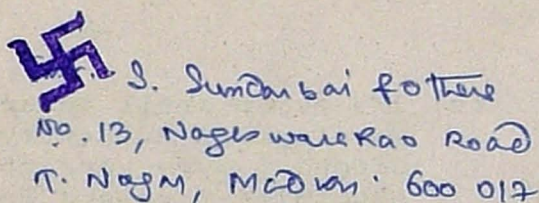 S. Sundarbai & others
No. 13, Nageswara Rao Road
T. Nagar, Madras. 600 017